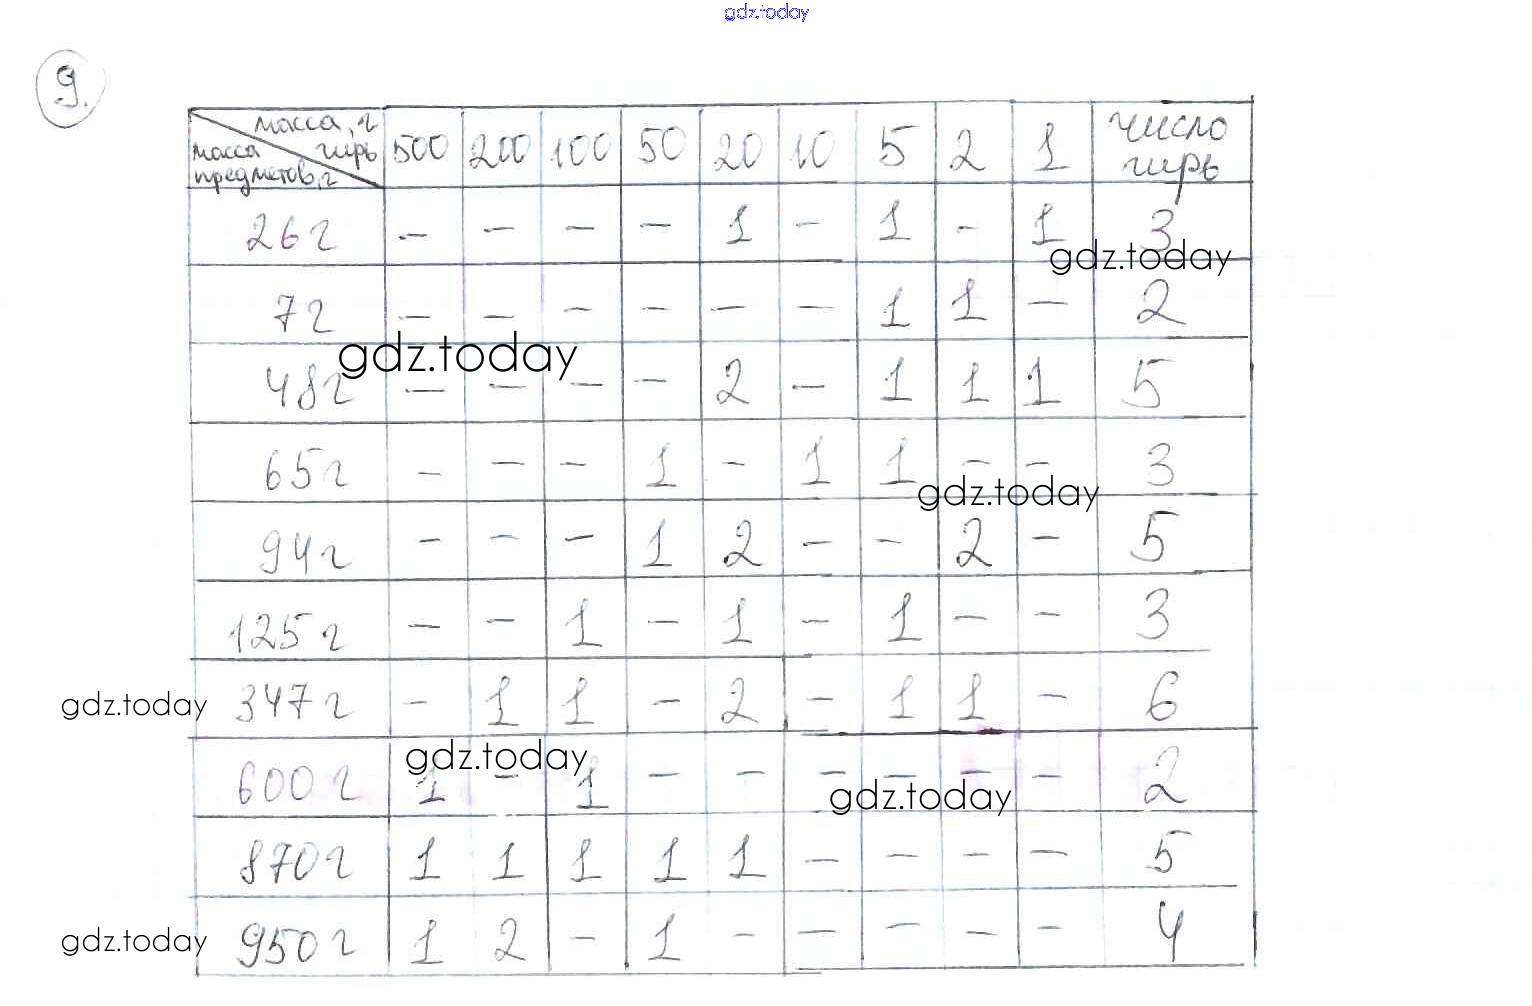 gdz.today
9.
масса, г
гирь
масса
предметов, г
500 200 100 50 20 10 5 2 1 число гирь
26 г – – – – 1 – 1 – 1 3
gdz.today
7 г – – – – – – 1 1 – 2
gdz.today
48 г – – – – 2 – 1 1 1 5
65 г – – – 1 – 1 1 – – 3
gdz.today
94 г – – – 1 2 – – 2 – 5
125 г – – 1 – 1 – 1 – – 3
gdz.today
347 г – 1 1 – 2 – 1 1 – 6
gdz.today
600 г 1 – 1 – – – – – – 2
gdz.today
870 г 1 1 1 1 1 – – – – 5
gdz.today
950 г 1 2 – 1 – – – – – 4